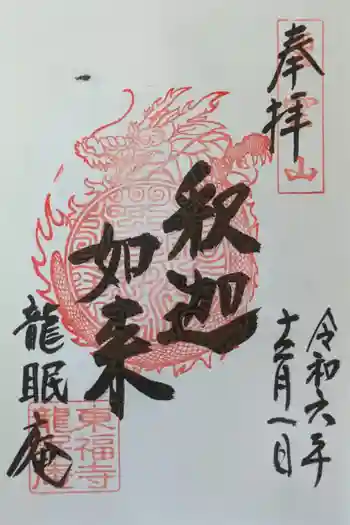 奉拝
令和六年
十二月一日
釈迦
如来
龍眠庵
東福寺
龍眠庵